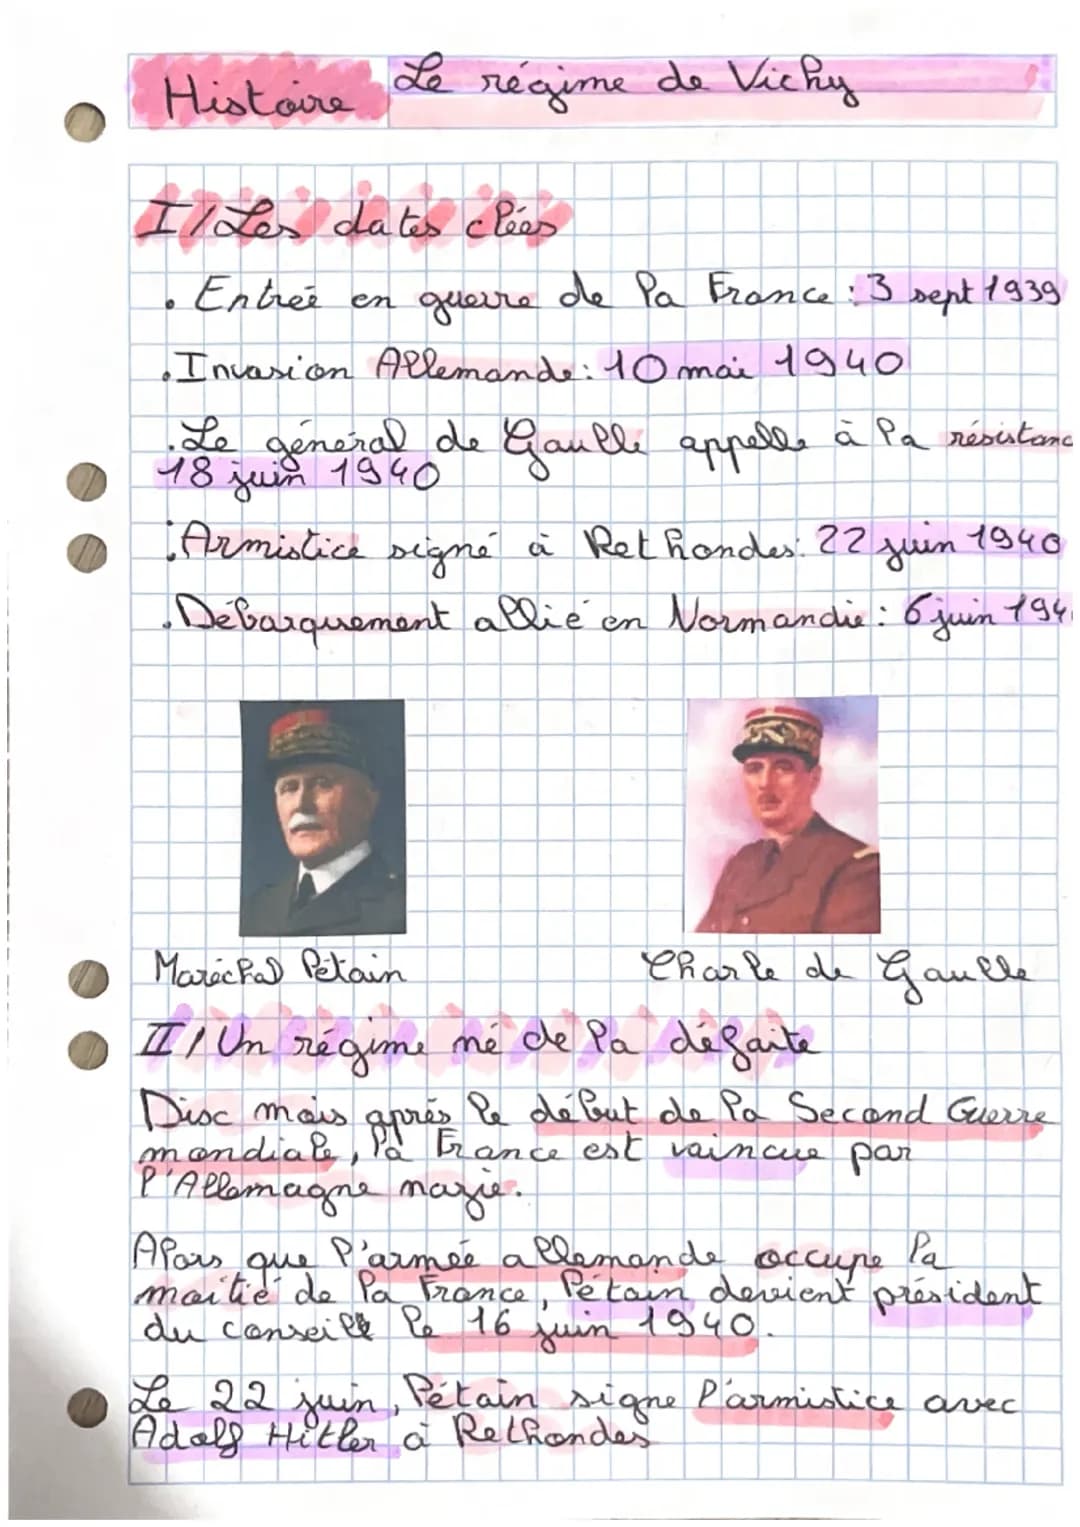 Histoire
Le régime de Vichy
I/ Les dates clées
. Entreé en guerre de la France : 3 sept 1939
. Invasion Allemande : 10 mai 1940
. Le général de Gaulle appelle à la résistanc
18 juin 1940
. Armistice signé à Rethondes : 22 juin 1940
. Débarquement allié en Normandie : 6 juin 194
Maréchal Pétain
Charle de Gaulle
II/ Un régime né de la défaite
Disc mois aprés le début de la Second Guerre
mondiale, la France est vaincue par
l'Allemagne nazie.
Alors que l'armée allemande occupe la
moitié de la France, Pétain devient président
du conseill le 16 juin 1940.
Le 22 juin, Pétain signe l'armistice avec
Adolf Hitler à Rethondes